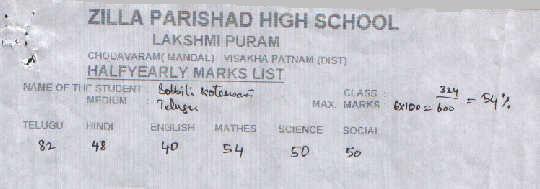 ZILLA PARISHAD HIGH SCHOOL
LAKSHMI PURAM
CHODAVARAM( MANDAL) VISAKHA PATNAM (DIST)
HALFYEARLY MARKS LIST
NAME OF THE STUDENT : CLASS :
MEDIUM : Telugu MAX. MARKS 6x100 = 324/600 = 54%
TELUGU HINDI ENGLISH MATHES SCIENCE SOCIAL
82 48 40 54 50 50